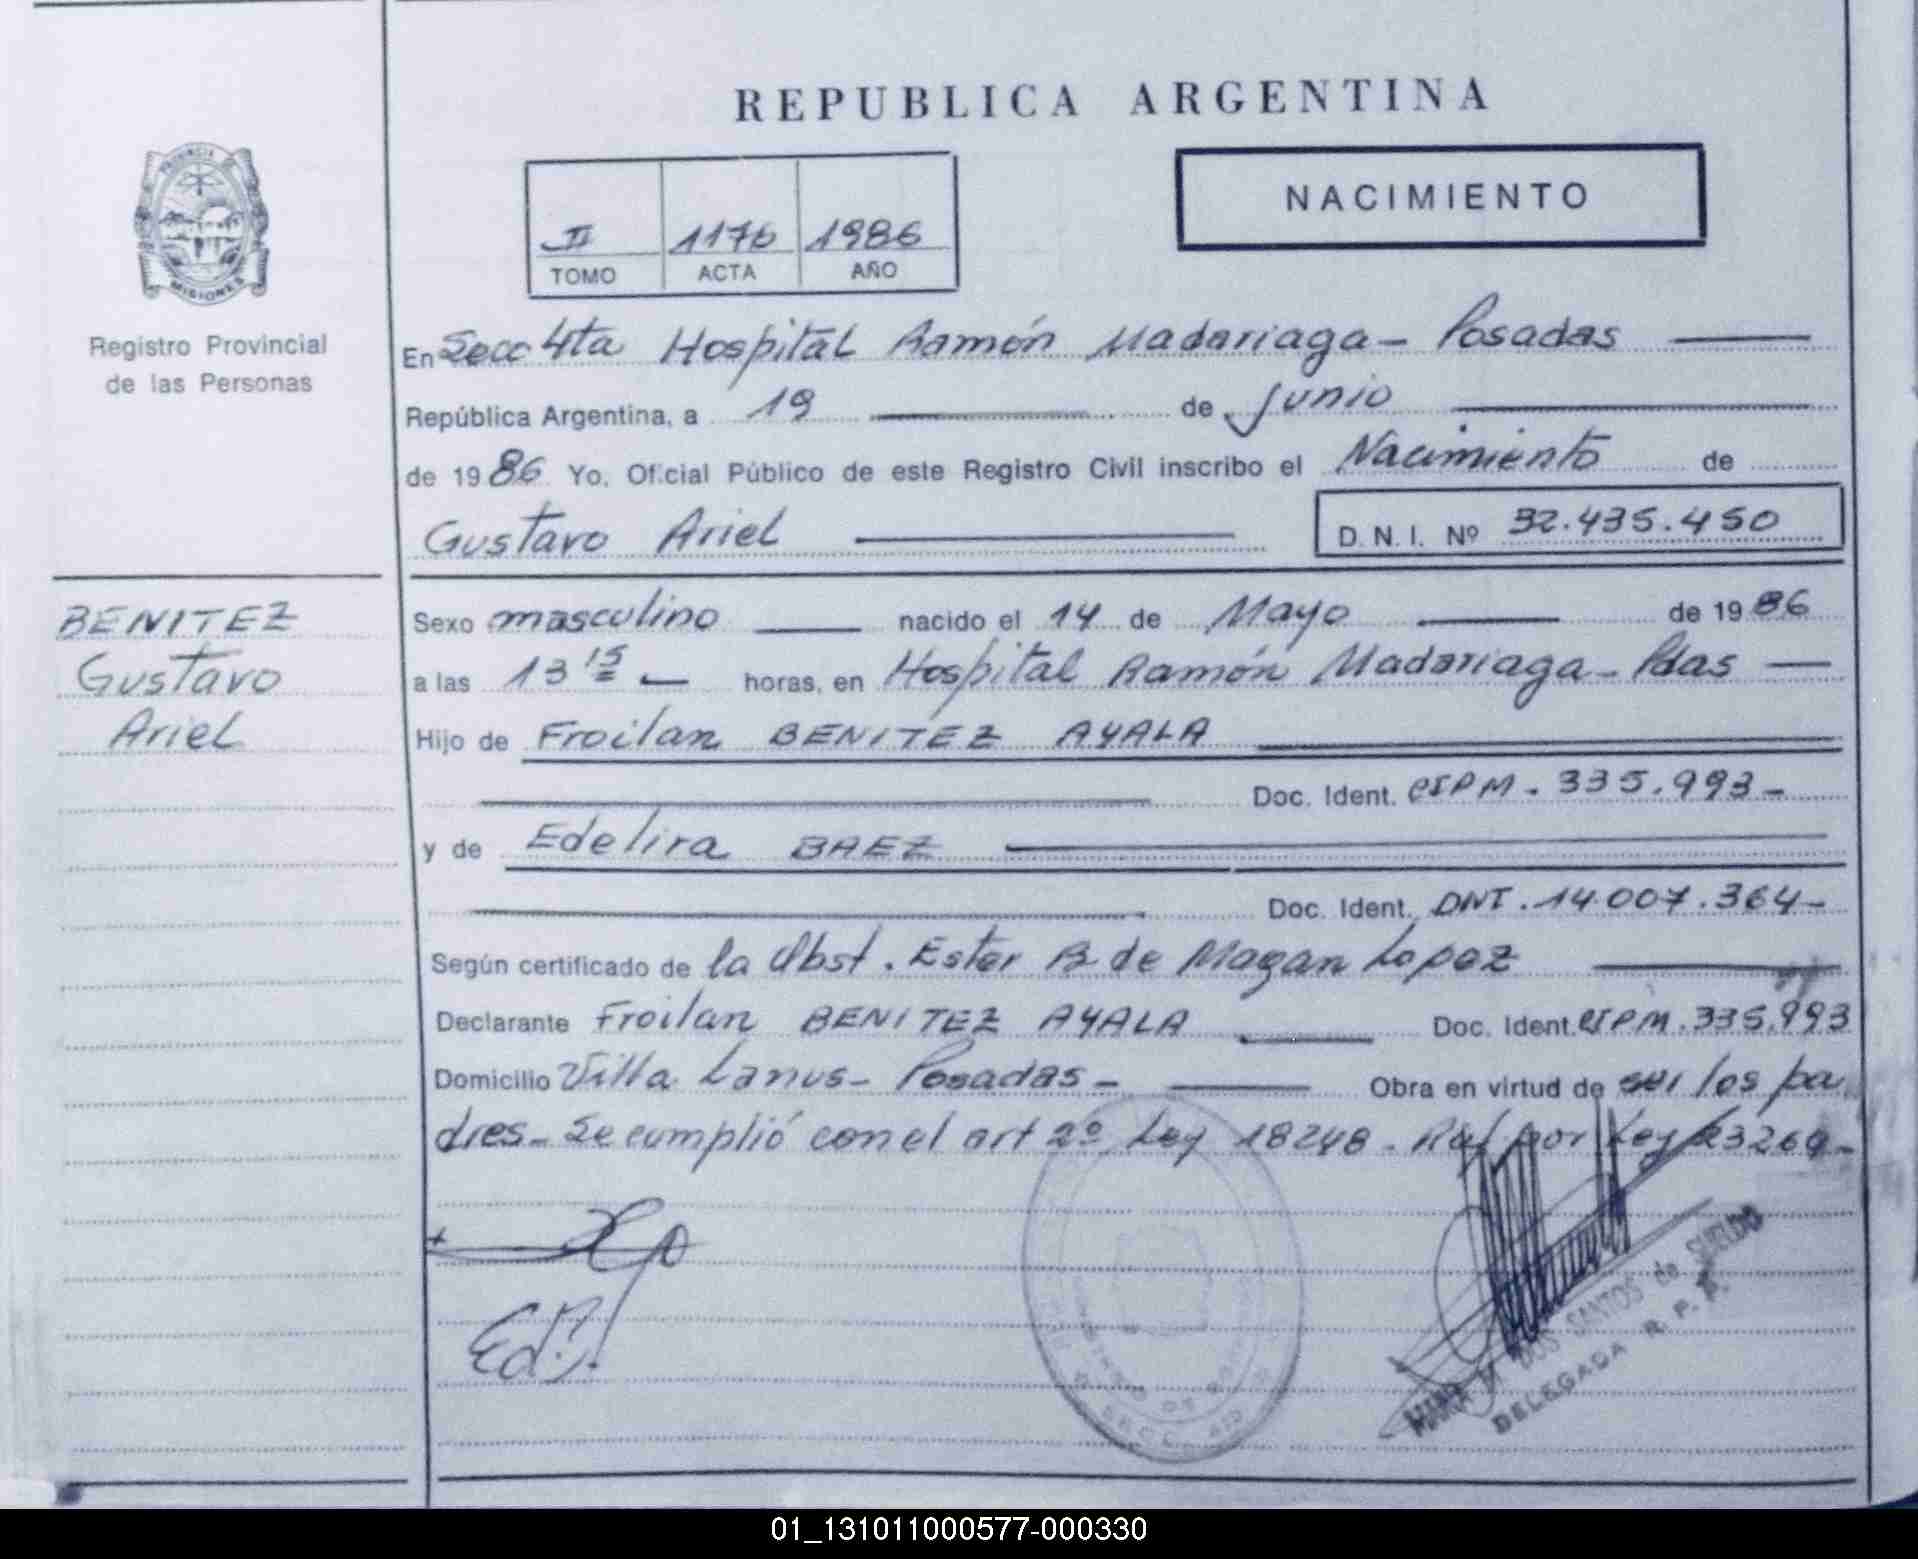 REPUBLICA ARGENTINA
PROVINCIA
MISIONES
Registro Provincial
de las Personas
NACIMIENTO
II 1176 1986
TOMO ACTA AÑO
En Secc 4ta Hospital Ramón Madariaga - Posadas
República Argentina, a 19 de Junio
de 1986 Yo, Oficial Público de este Registro Civil inscribo el Nacimiento de
Gustavo Ariel D. N. I. Nº 32.435.450
BENITEZ
Gustavo
Ariel
Sexo masculino nacido el 14 de Mayo de 1986
a las 13 15 horas, en Hospital Ramón Madariaga - Pdas
Hijo de Froilan BENITEZ AYALA
Doc. Ident. CIPM. 335.993-
y de Edelira BAEZ
Doc. Ident. DNI. 14.007.364-
Según certificado de la Obst. Ester B. de Magan Lopez
Declarante Froilan BENITEZ AYALA Doc. Ident. CIPM. 335.993
Domicilio Villa Lanus - Posadas - Obra en virtud de los pa
dres - Se cumplió con el art 2º Ley 18248 - por Ley 23264-
DOS SANTOS de SUELDO
DELEGADA R. P. P.
01_131011000577-000330